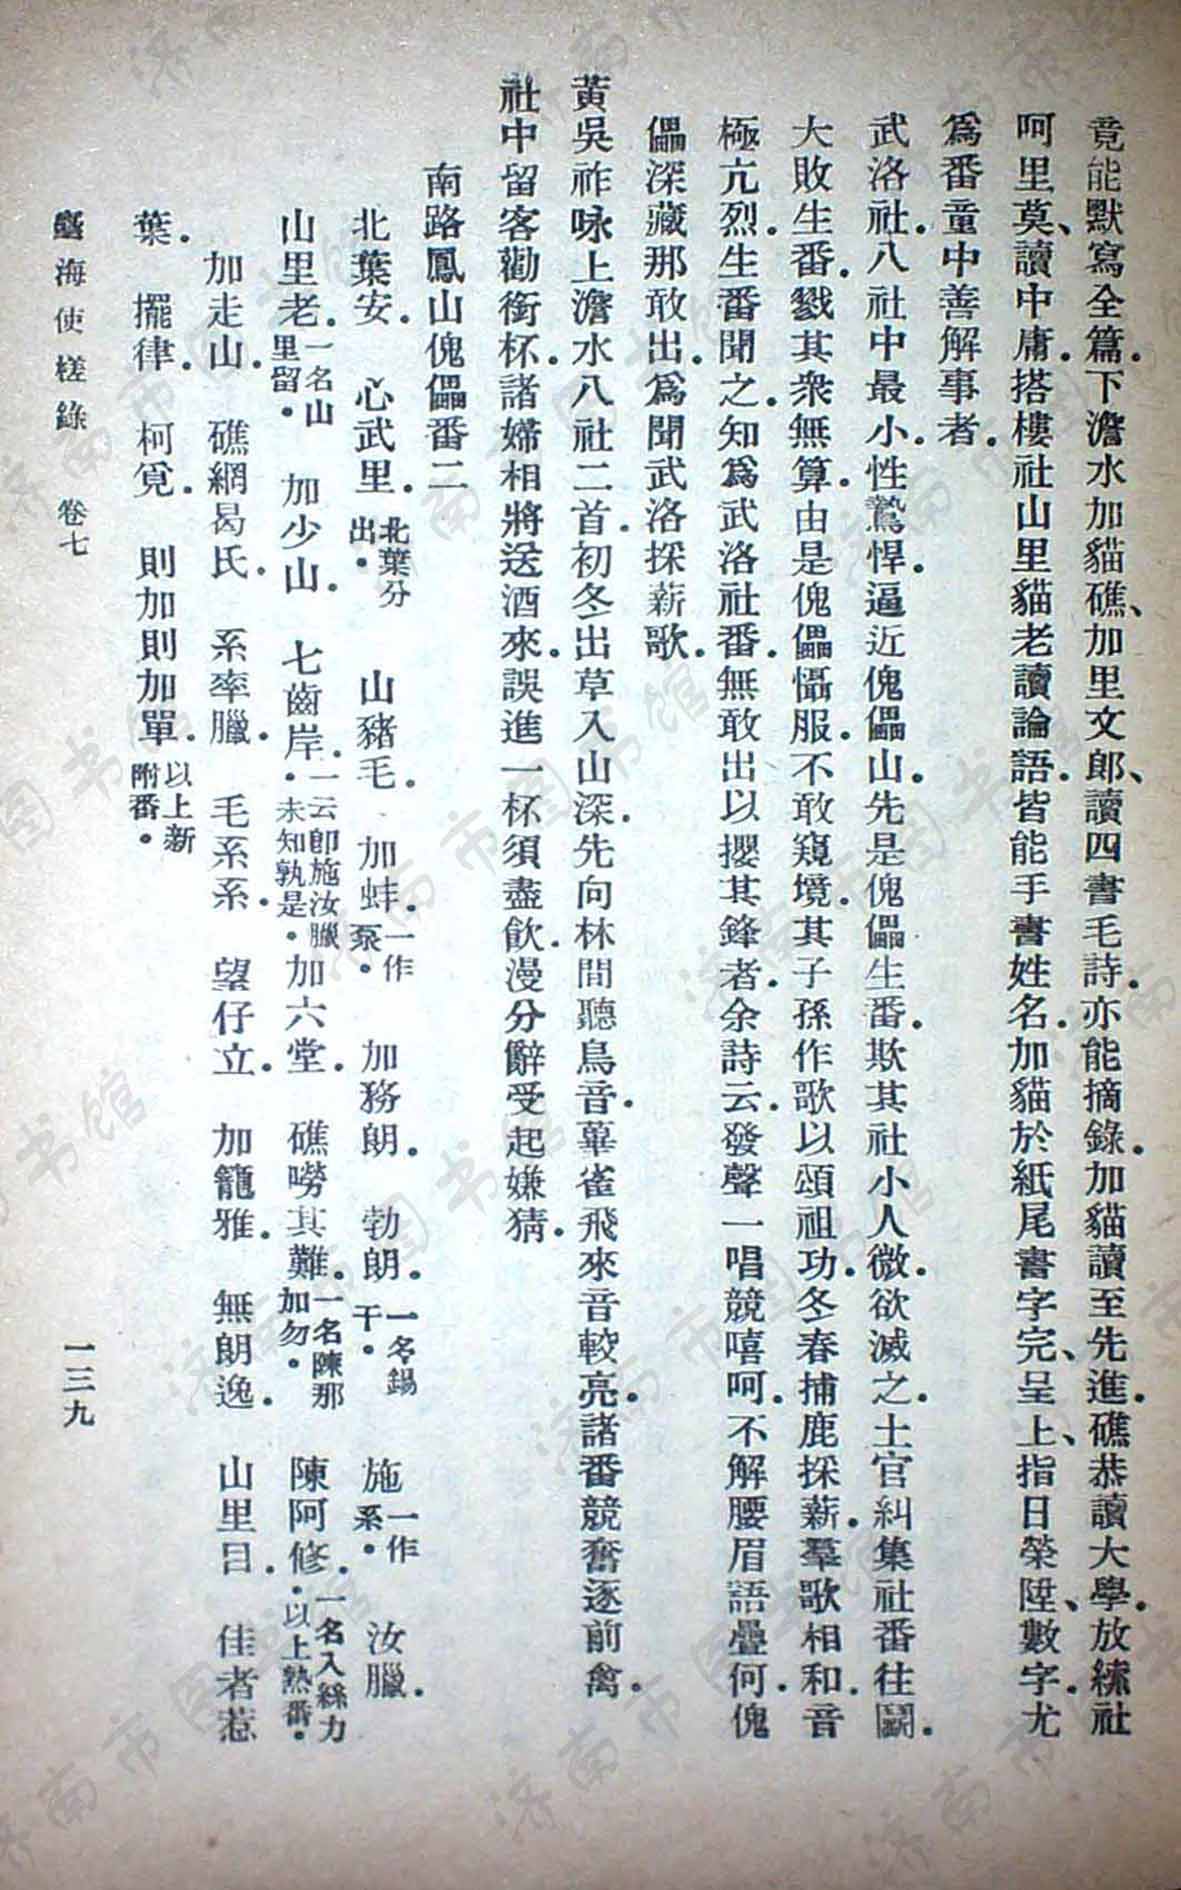 竟能默寫全篇。下澹水加貓礁、加里文郎、讀四書毛詩。亦能摘錄。加貓讀至先進。礁恭讀大學。放𦄂社
呵里莫、讀中庸。搭樓社山里貓老讀論語。皆能手書姓名。加貓於紙尾書字完、呈上、指日榮陞、數字。尤
爲番童中善解事者。
武洛社。八社中最小。性鷙悍。逼近傀儡山。先是傀儡生番。欺其社小人微。欲滅之。土官糾集社番往鬭。
大敗生番。戮其衆無算。由是傀儡懾服。不敢窺境。其子孫作歌以頌祖功。冬春捕鹿採薪。羣歌相和。音
極亢烈。生番聞之。知爲武洛社番。無敢出以攖其鋒者。余詩云。發聲一唱競嘻呵。不解腰眉語疊何。傀
儡深藏那敢出。爲聞武洛採薪歌。
黃吳祚咏上澹水八社二首。初冬出草入山深。先向林間聽鳥音。蓽雀飛來音較亮。諸番競奮逐前禽。
社中留客勸銜杯。諸婦相將送酒來。誤進一杯須盡飲。漫分辭受起嫌猜。
南路鳳山傀儡番二
北葉安。　心武里。北葉分出。　山豬毛。　加蚌。一作泵。　加務朗。　勃朗。一名錫干。　施。一作系。　汝臘。
山里老。一名山里留。　加少山。　七齒岸。一云卽施汝臘。未知孰是。　加六堂。　礁嘮其難。一名陳那加勿。　陳阿修。一名入絲力。以上熟番。
加走山。　礁網曷氏。　系率臘。　毛系系。　望仔立。　加籠雅。　無朗逸。　山里目。　佳者惹
葉。　擺律。　柯覓。　則加則加單。以上新附番。
臺海使槎錄　卷七　一三九